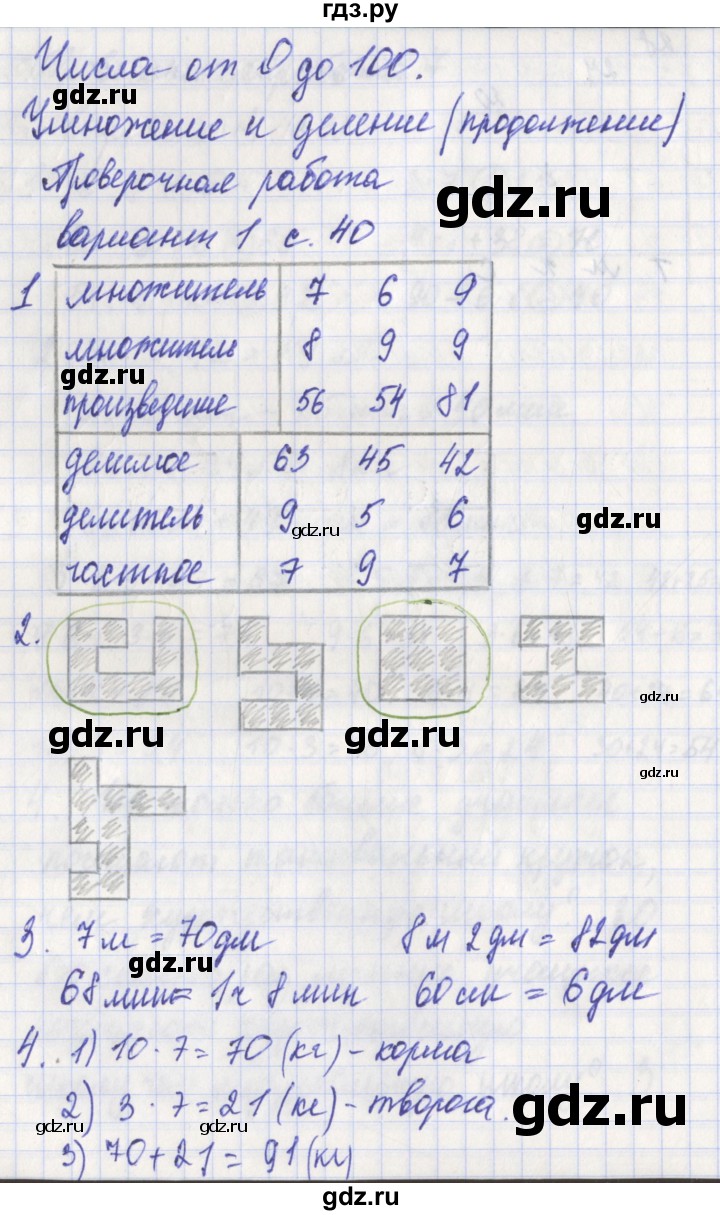 гдз.ру
Числа от 0 до 100.
gdz.ru
Умножение и деление (продолжение)
Проверочная работа
gdz.ru
вариант 1 с. 40
1 множитель 7 6 9
множитель 8 9 9
gdz.ru
произведение 56 54 81
делимое 63 45 42
делитель 9 5 6
gdz.ru gdz.ru
частное 7 9 7
2.
gdz.ru gdz.ru gdz.ru
gdz.ru
3. 7м = 70дм 8м 2дм = 82дм
gdz.ru
68мин = 1ч 8мин 60см = 6дм
4. 1) 10 · 7 = 70 (кг) – корма
2) 3 · 7 = 21 (кг) – творога.
gdz.ru gdz.ru gdz.ru
3) 70 + 21 = 91 (кг)
gdz.ru